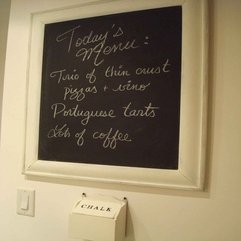 Today's
Menu:
Trio of thin crust
pizzas + vino
Portuguese tarts
Lots of coffee
CHALK